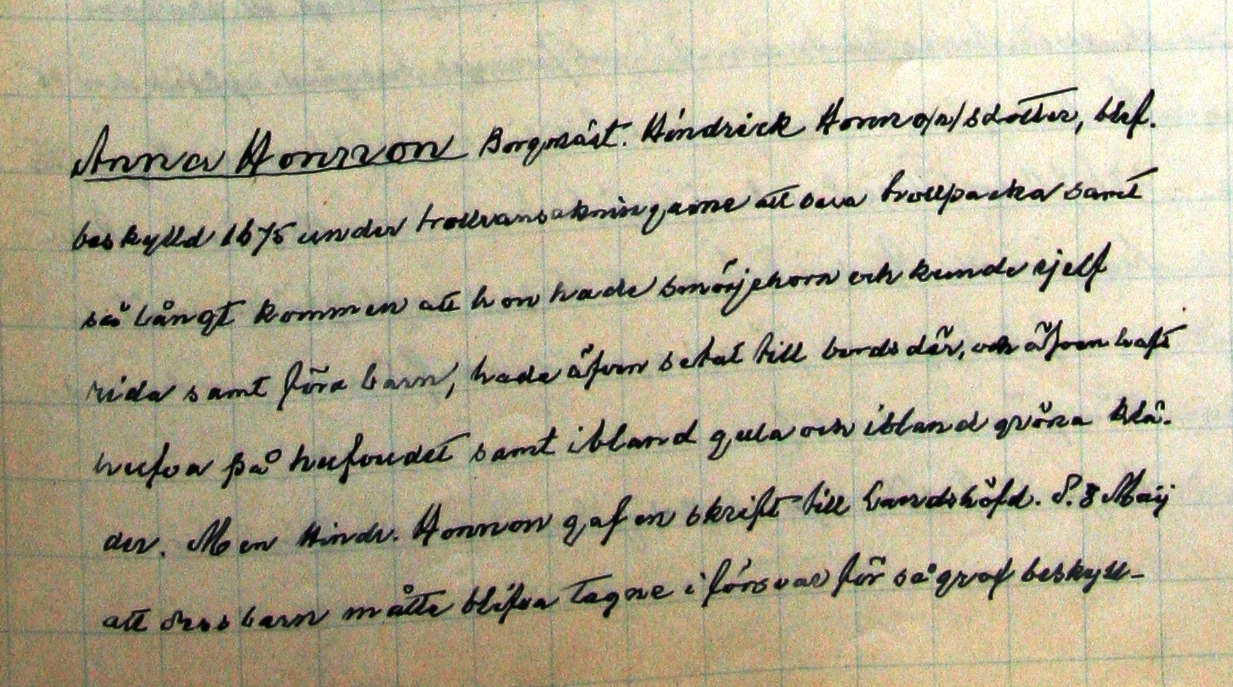 Anna Honnon Borgmäst. Hindrick Honno/n/sdotter, blef.
beskylld 1675 under trollransakningarne att vara trollpacka samt
så långt kommen att hon hade smörjehorn och kunde sjelf
rida samt föra barn, hade äfven setat till bords där, och äfven haft
hufva på hufvudet samt ibland gula och ibland gröna klä-
der. Men Hindr. Honnon gaf en skrift till Landshöfd. d. 8 Maij
att dess barn måtte blifva tagne i försvar för så grof beskyll-